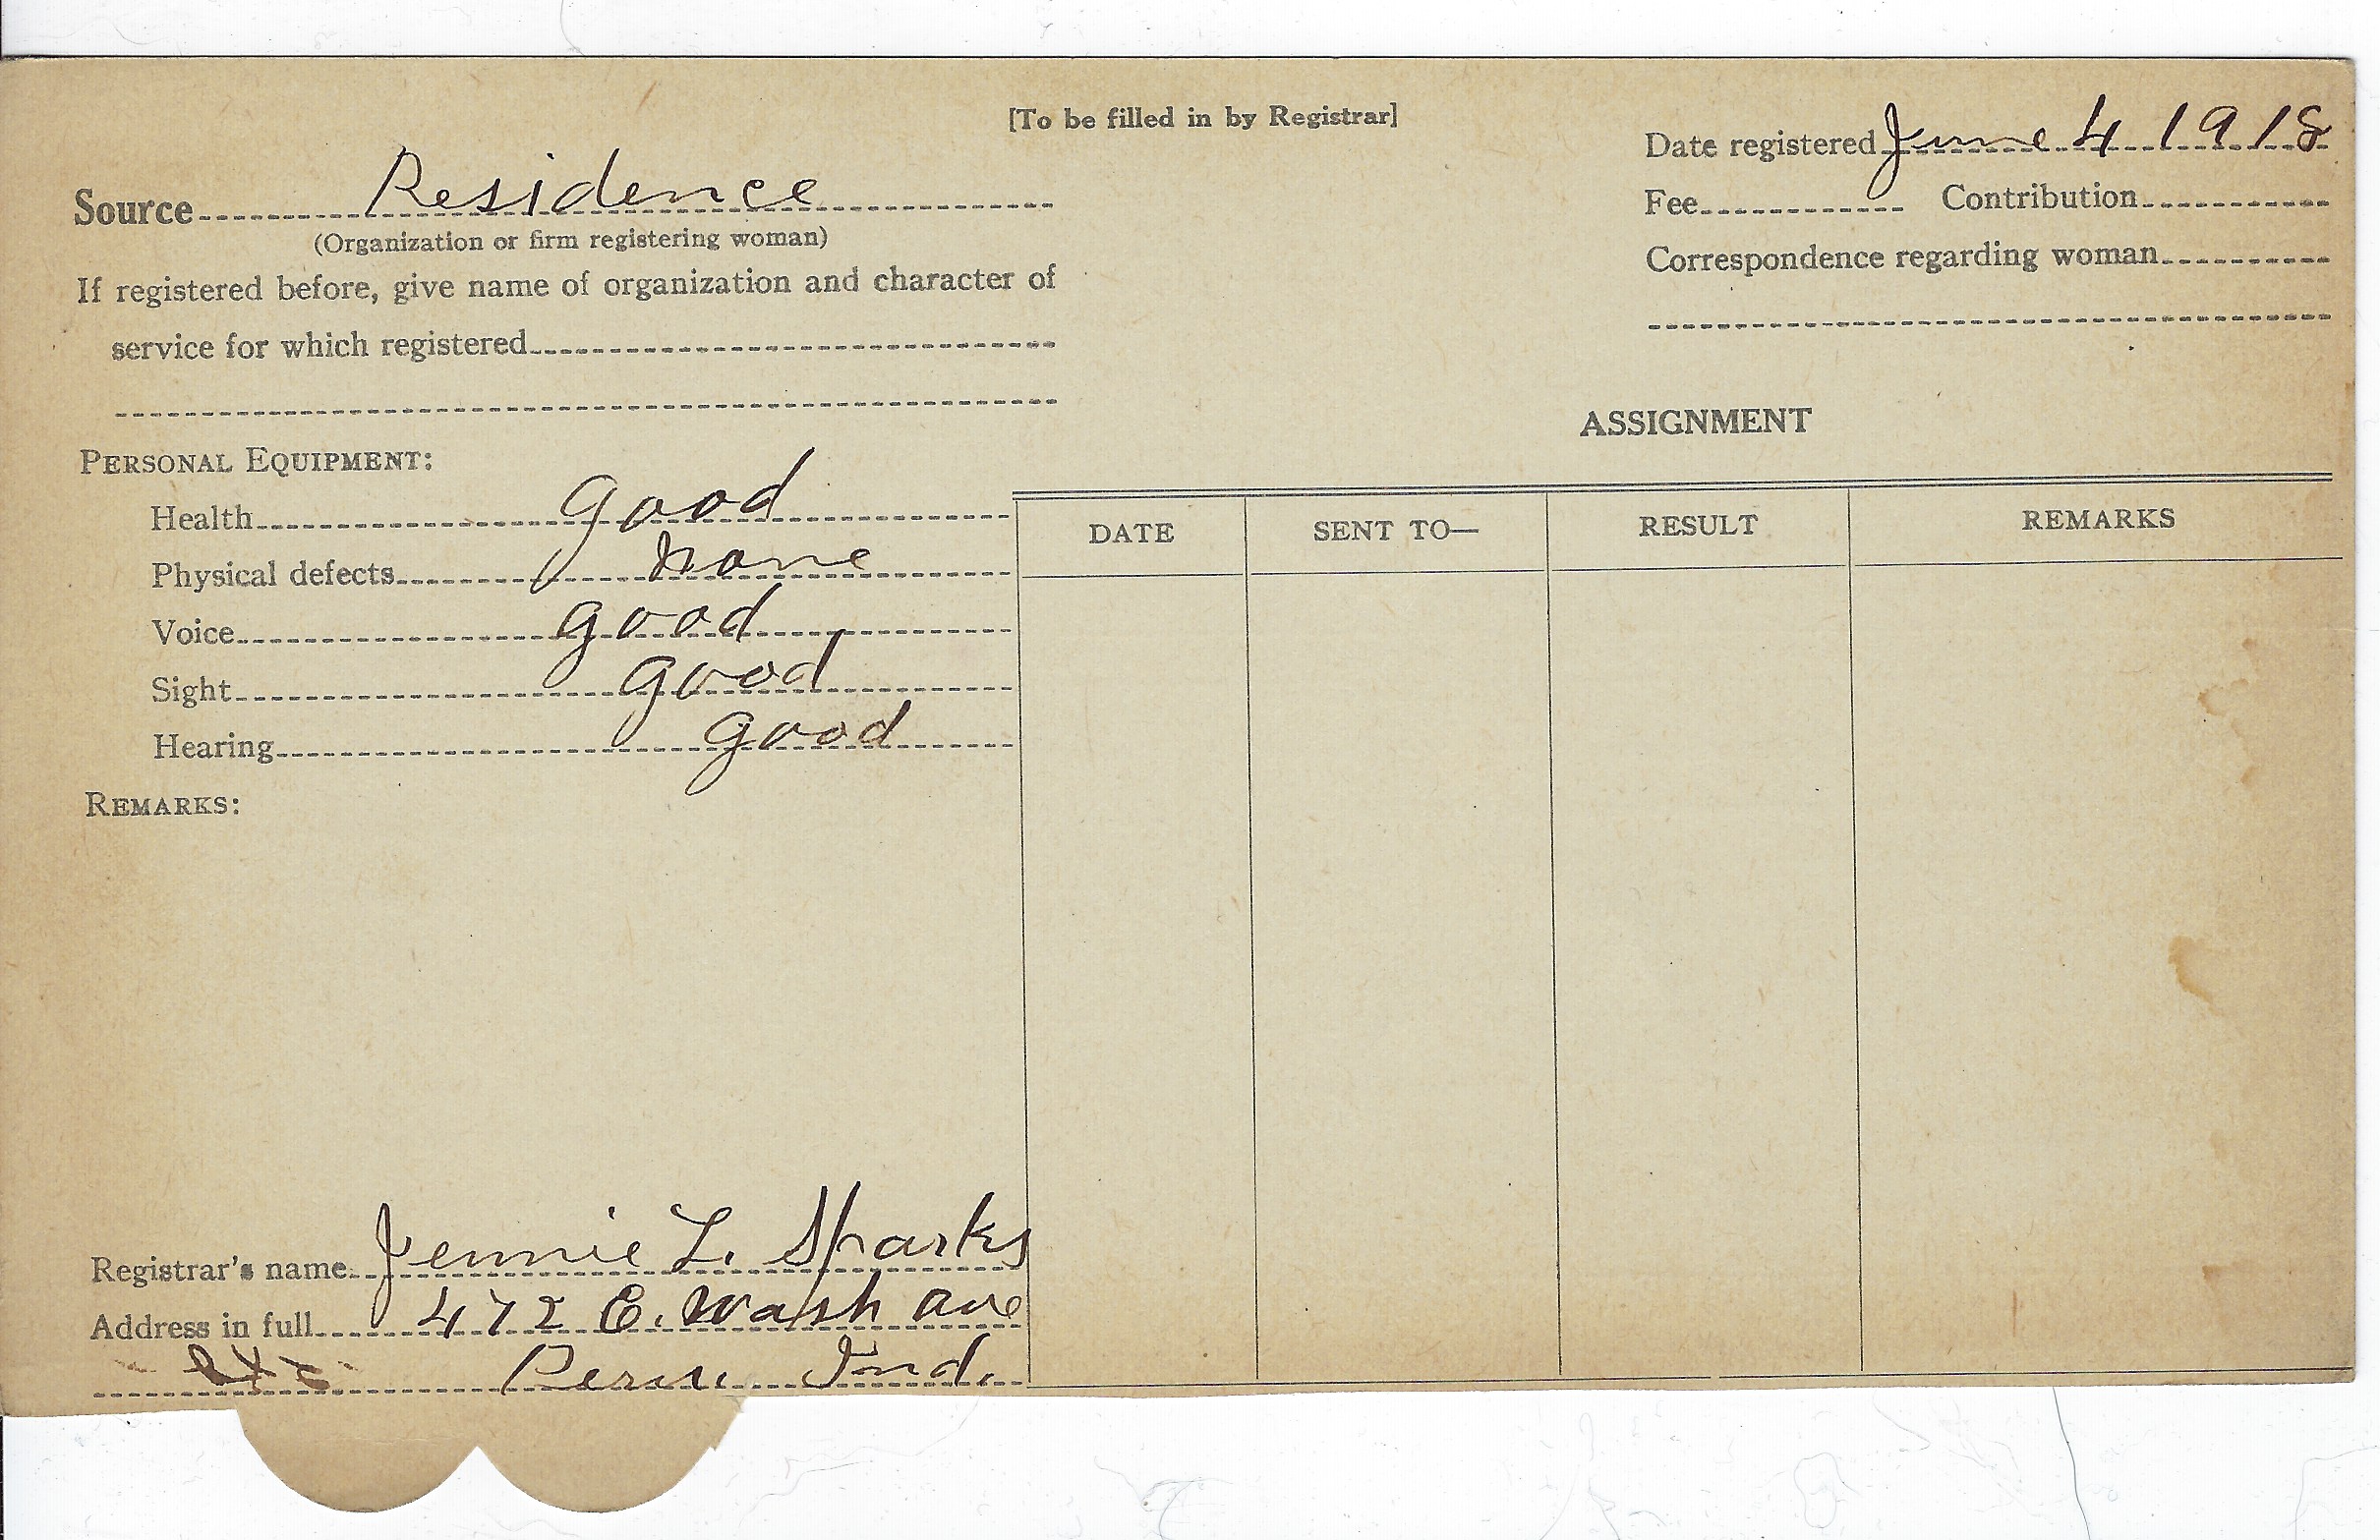 [To be filled in by Registrar]
Date registered June 4 1918
Source Residence
(Organization or firm registering woman)
Fee Contribution
Correspondence regarding woman
If registered before, give name of organization and character of
service for which registered
PERSONAL EQUIPMENT:
Health good
Physical defects none
Voice good
Sight good
Hearing good
REMARKS:
Registrar's name Jennie L. Sparks
Address in full 472 E. Wash Ave
Peru Ind.
ASSIGNMENT
DATE SENT TO— RESULT REMARKS